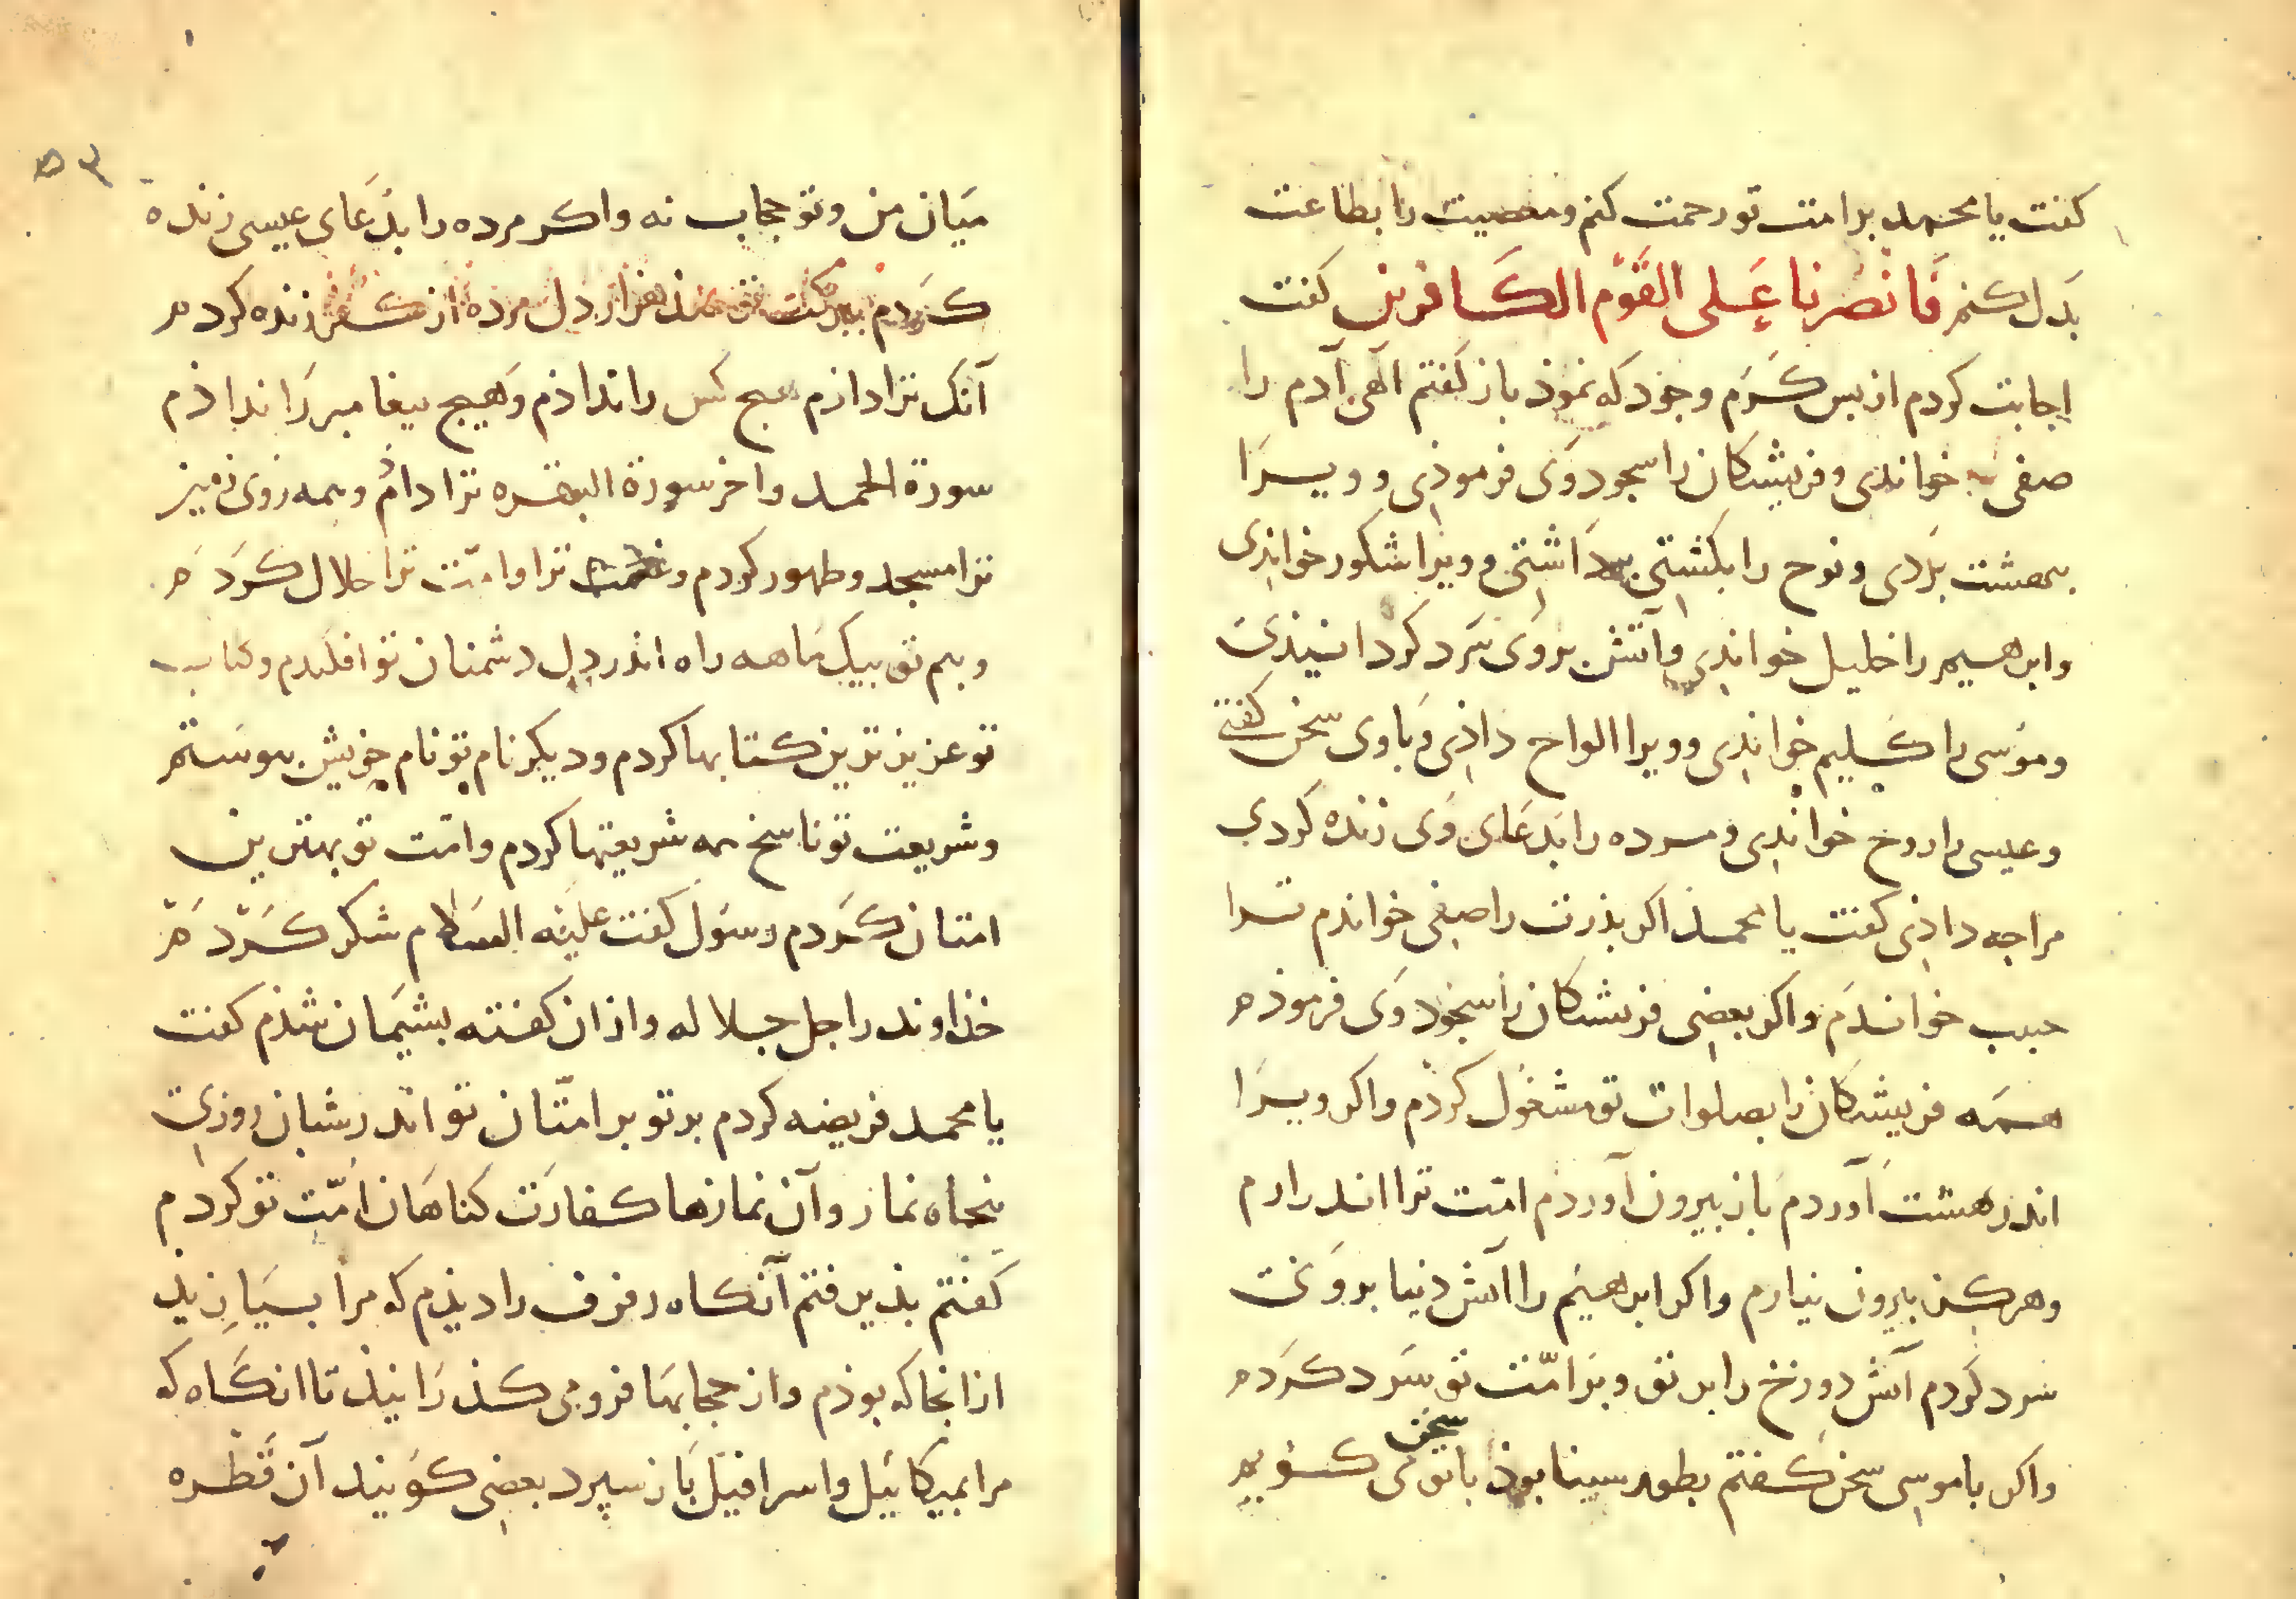 كفت يا محمد بر امت تو رحمت كنم ومعصيت را بطاعت
بدل كنم فَانْصُرْنَا عَلَى القَوْمِ الكَافِرِين كفت
اجابت كردم از بس كرم وجود كه نموذ باز كفتم الهى آدم را
صفى خواندى وفريشتكان را سجود وى فرموذى وويرا
ببهشت بردى ونوح را بكشتى بداشتى وويرا شكور خواندى
وابرهيم را خليل خواندى وآتش بروى سرد كردانيذى
وموسى را كليم خواندى وويرا الواح داذى وباوى سخن كفتى
وعيسى را روح خواندى ومرده را بدعاى وى زنده كردى
مرا چه داذى كفت يا محمذ اكر بذرت را صفى خواندم ترا
حبيب خواندم واكر بعضى فريشتكان را سجود وى فرموذم
همه فريشتكان را بصلوات تو مشغول كردم واكر ويرا
اندر بهشت آوردم باز بيرون آوردم امت ترا اندر ارم
وهركز بيرون نيارم واكر ابرهيم را آتش دنيا بروى
سرد كردم آتش دوزخ را بر تو وبر امّت تو سرد كردم
واكر با موسى سخن كفتم بطور سينا بوذ با تو سخن مى كويم
٥٣
ميان من وتو حجاب نه واكر مرده را بدعاى عيسى زنده
كردم ببركت تو هزار دل مرده از كفر زنده كردم
آنك ترا داذم هيچ كس را نداذم وهيچ پيغامبر را نداذم
سورة الحمد واخر سورة البقره ترا دادم وهمه روى زمين
ترا مسجد وطهور كردم وغنيمت ترا وامّت ترا حلال كردم
وبيم تو بيك ماهه راه اندر دل دشمنان تو افكندم وكتاب
تو عزيز ترين كتابها كردم وديكر نام تو نام خويش پيوستم
وشريعت تو ناسخ همه شريعتها كردم وامّت تو بهترين
امتان كردم رسول كفت عليه السلام شكر كردم
خذاوند را جل جلاله واز ان كفته پشيمان شذم كفت
يا محمد فريضه كردم بر تو بر امتّان تو اندر شبان روزى
پنجاه نماز وآن نمازها كفارت كناهان امّت تو كردم
كفتم بذيرفتم آنكاه رفرف را ديذم كه مرا
از انجا كه بوذم واز حجابها فرو مى كذرانيذ تا انكاه كه
مرا بميكائيل واسرافيل باز سپرد بعضى كويند آن قطره